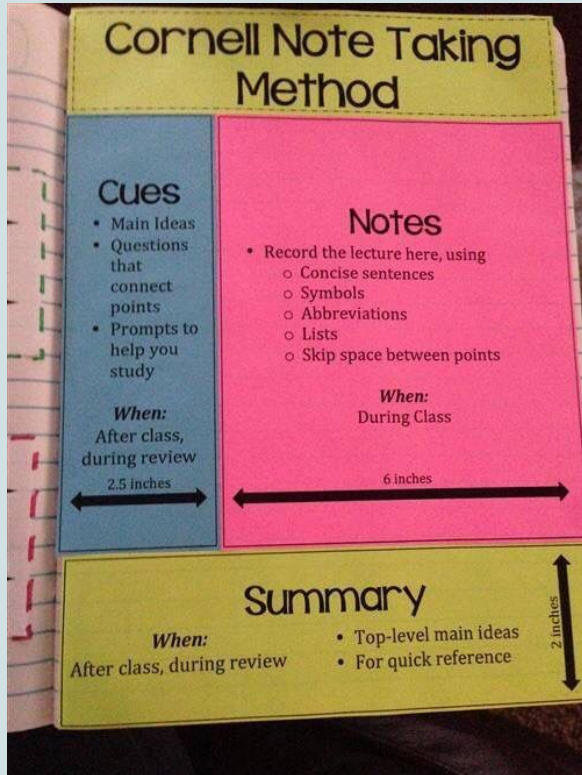 Cornell Note Taking
Method
Cues
• Main Ideas
• Questions
that
connect
points
• Prompts to
help you
study
When:
After class,
during review
2.5 inches
Notes
• Record the lecture here, using
o Concise sentences
o Symbols
o Abbreviations
o Lists
o Skip space between points
When:
During Class
6 inches
Summary
When:
After class, during review
• Top-level main ideas
• For quick reference
2 inches